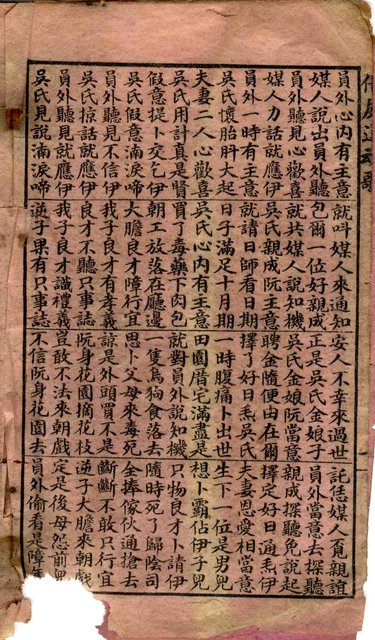 員外心內有主意　就叫媒人來通知　安人不幸來過世　託恁媒人覓親誼
媒人說出員外聽　包爾一位好親成　正是吳氏金娘子　員外當意去探聽
員外聽見心歡喜　就共媒人說知機　吳氏金娘阮當意　親成探聽免說起
媒人力話就應伊　吳氏親成阮主意　聘金隨便由在爾　擇定好日通𤆬伊
員外一時有主意　就請日師看日期　擇了好日𤆬吳氏　夫妻恩愛相當意
吳氏懷胎肝大起　日子滿足十月期　一時腹痛卜出世　生下一位是男兒
夫妻二人心歡喜　吳氏心內有主意　田園厝宅滿盡是　想卜霸佔伊子兒
吳氏用計真是賢　買了毒藥下肉包　就對員外說知機　只物良才卜請伊
假意提卜交乞伊　朝工放落在廳邊　一隻鳥狗食落去　隨時死了歸陰司
吳氏假意湳淚啼　大膽良才障行宜　思卜父母來毒死　全捧傢伙通搶去
員外聽見不信伊　我子良才有孝義　諒是外頭買不是　斷斷不敢只行宜
吳氏掠話就應伊　良才不聽只事誌　阮身花園摘花枝　逆子大膽來朝戲
員外聽見就應伊　我子良才識禮義　豈敢不法來朝戲　定是後母怨前兒
吳氏見說湳淚啼　逆子果有只事誌　不信阮身花園去　員外偷看是障年